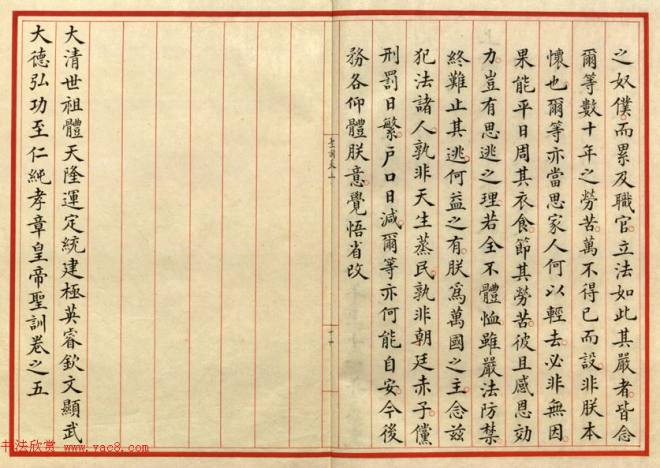 之奴僕而累及職官立法如此其嚴者皆念
爾等數十年之勞苦萬不得已而設非朕本
懷也爾等亦當思家人何以輕去必非無因
果能平日周其衣食節其勞苦彼且感恩効
力豈有思逃之理若全不體恤雖嚴法防禁
終難止其逃何益之有朕為萬國之主念茲
犯法諸人孰非天生蒸民孰非朝廷赤子儻
刑罰日繁戶口日減爾等亦何能自安今後
務各仰體朕意覺悟省改
大清世祖體天隆運定統建極英睿欽文顯武
大德弘功至仁純孝章皇帝聖訓卷之五
书法欣赏 www.yac8.com